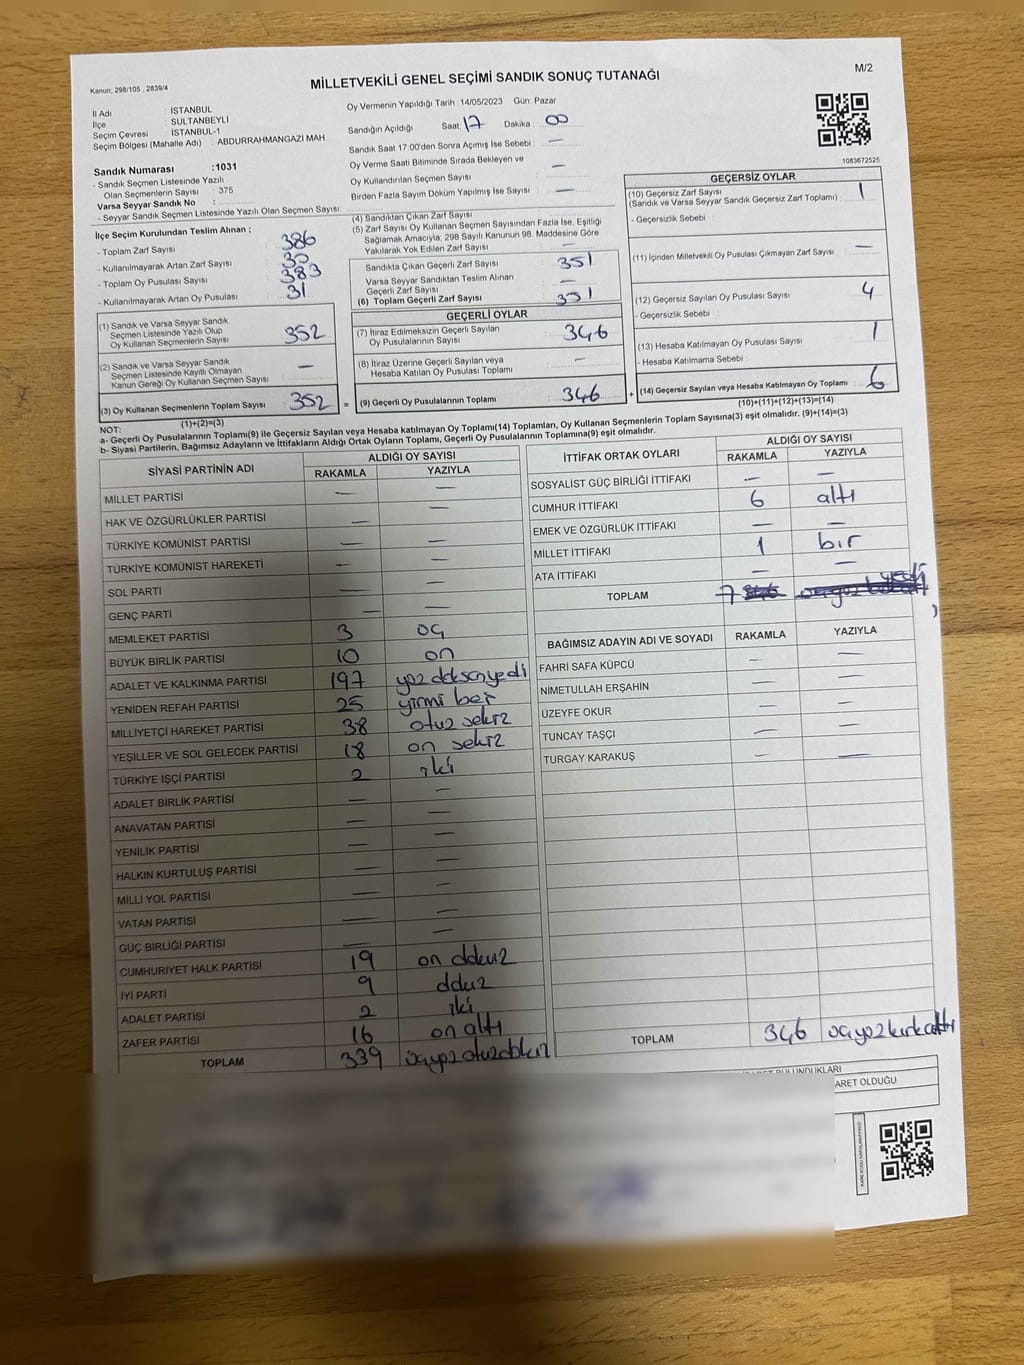 Kanun; 298/105 , 2839/4
MİLLETVEKİLİ GENEL SEÇİMİ SANDIK SONUÇ TUTANAĞI
M/2
İl Adı : İSTANBUL
İlçe : SULTANBEYLİ
Seçim Çevresi : İSTANBUL-1
Seçim Bölgesi (Mahalle Adı) : ABDURRAHMANGAZI MAH
Sandık Numarası :1031
- Sandık Seçmen Listesinde Yazılı
Olan Seçmenlerin Sayısı : 375
Varsa Seyyar Sandık No :
- Seyyar Sandık Seçmen Listesinde Yazılı Olan Seçmen Sayısı:
Oy Vermenin Yapıldığı Tarih :14/05/2023 Gün: Pazar
Sandığın Açıldığı Saat 17 Dakika : 00
Sandık Saat 17:00'den Sonra Açımış İse Sebebi : —
Oy Verme Saati Bitiminde Sırada Bekleyen ve
Oy Kullandırılan Seçmen Sayısı : —
Birden Fazla Sayım Döküm Yapılmış İse Sayısı : —
1083672525
İlçe Seçim Kurulundan Teslim Alınan ;
- Toplam Zarf Sayısı : 386
- Kullanılmayarak Artan Zarf Sayısı : 35
- Toplam Oy Pusulası Sayısı : 383
- Kullanılmayarak Artan Oy Pusulası : 31
(1) Sandık ve Varsa Seyyar Sandık
Seçmen Listesinde Yazılı Olup
Oy Kullanan Seçmenlerin Sayısı : 352
(2) Sandık ve Varsa Seyyar Sandık
Seçmen Listesinde Kayıtlı Olmayan
Kanun Gereği Oy Kullanan Seçmen Sayısı : —
(3) Oy Kullanan Seçmenlerin Toplam Sayısı : 352
(1)+(2)=(3)
(4) Sandıktan Çıkan Zarf Sayısı
(5) Zarf Sayısı Oy Kullanan Seçmen Sayısından Fazla İse, Eşitliği
Sağlamak Amacıyla, 298 Sayılı Kanunun 98. Maddesine Göre
Yakılarak Yok Edilen Zarf Sayısı : —
Sandıkta Çıkan Geçerli Zarf Sayısı : 351
Varsa Seyyar Sandıktan Teslim Alınan
Geçerli Zarf Sayısı : —
(6) Toplam Geçerli Zarf Sayısı : 351
GEÇERLİ OYLAR
(7) İtiraz Edilmeksizin Geçerli Sayılan
Oy Pusulalarının Sayısı : 346
(8) İtiraz Üzerine Geçerli Sayılan veya
Hesaba Katılan Oy Pusulası Toplamı : —
= (9) Geçerli Oy Pusulalarının Toplamı : 346
GEÇERSİZ OYLAR
(10) Geçersiz Zarf Sayısı
(Sandık ve Varsa Seyyar Sandık Geçersiz Zarf Toplamı) : 1
- Geçersizlik Sebebi :
(11) İçinden Milletvekili Oy Pusulası Çıkmayan Zarf Sayısı : —
(12) Geçersiz Sayılan Oy Pusulası Sayısı : 4
- Geçersizlik Sebebi :
(13) Hesaba Katılmayan Oy Pusulası Sayısı : 1
- Hesaba Katılmama Sebebi :
+ (14) Geçersiz Sayılan veya Hesaba Katılmayan Oy Toplamı : 6
(10)+(11)+(12)+(13)=(14)
NOT:
a- Geçerli Oy Pusulalarının Toplamı(9) ile Geçersiz Sayılan veya Hesaba Katılmayan Oy Toplamı(14) Toplamları, Oy Kullanan Seçmenlerin Toplam Sayısına(3) eşit olmalıdır. (9)+(14)=(3)
b- Siyasi Partilerin, Bağımsız Adayların ve İttifakların Aldığı Ortak Oyların Toplamı, Geçerli Oy Pusulalarının Toplamına(9) eşit olmalıdır.
SİYASİ PARTİNİN ADI ALDIĞI OY SAYISI
RAKAMLA YAZIYLA
MİLLET PARTİSİ — —
HAK VE ÖZGÜRLÜKLER PARTİSİ — —
TÜRKİYE KOMÜNİST PARTİSİ — —
TÜRKİYE KOMÜNİST HAREKETİ — —
SOL PARTİ — —
GENÇ PARTİ — —
MEMLEKET PARTİSİ 3 üç
BÜYÜK BİRLİK PARTİSİ 10 on
ADALET VE KALKINMA PARTİSİ 197 yüz doksanyedi
YENİDEN REFAH PARTİSİ 25 yirmi beş
MİLLİYETÇİ HAREKET PARTİSİ 38 otuz sekiz
YEŞİLLER VE SOL GELECEK PARTİSİ 18 on sekiz
TÜRKİYE İŞÇİ PARTİSİ 2 iki
ADALET BİRLİK PARTİSİ — —
ANAVATAN PARTİSİ — —
YENİLİK PARTİSİ — —
HALKIN KURTULUŞ PARTİSİ — —
MİLLİ YOL PARTİSİ — —
VATAN PARTİSİ — —
GÜÇ BİRLİĞİ PARTİSİ — —
CUMHURİYET HALK PARTİSİ 19 on dokuz
İYİ PARTİ 9 dokuz
ADALET PARTİSİ 2 iki
ZAFER PARTİSİ 16 on altı
TOPLAM 339 üçyüz otuzdokuz
İTTİFAK ORTAK OYLARI ALDIĞI OY SAYISI
RAKAMLA YAZIYLA
SOSYALİST GÜÇ BİRLİĞİ İTTİFAKI — —
CUMHUR İTTİFAKI 6 altı
EMEK VE ÖZGÜRLÜK İTTİFAKI — —
MİLLET İTTİFAKI 1 bir
ATA İTTİFAKI — —
TOPLAM 7 yedi
BAĞIMSIZ ADAYIN ADI VE SOYADI RAKAMLA YAZIYLA
FAHRİ SAFA KÜPCÜ — —
NİMETULLAH ERŞAHİN — —
ÜZEYFE OKUR — —
TUNCAY TAŞÇI — —
TURGAY KARAKUŞ — —
TOPLAM 346 üçyüz kırkaltı
ARET OLDUĞU